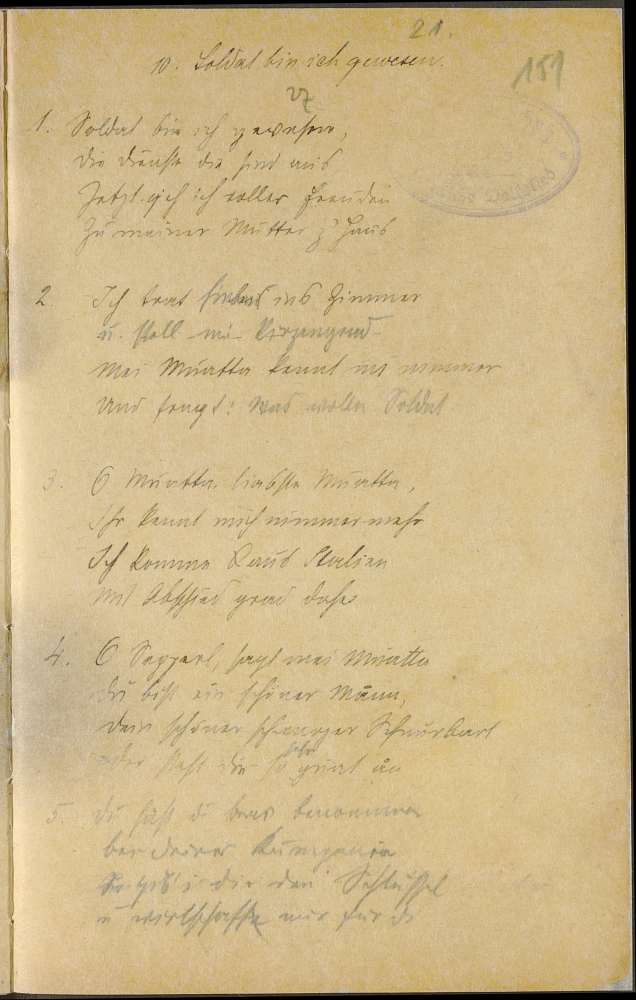 21.
10. Soldat bin ich gewesen.
151
27
1. Soldat bin ich gewesen,
Die Dienste die sind aus
Jetzt geh ich voller Freuden
Zu meiner Mutter z' Haus
2. Ich trat ins Zimmer
u. stell mi
Mei Muatta kennt mi nimmer
Und fragt: Was wolln Soldat
3. O Muatta, liabste Muatta,
Ihr kennt mich nimmermehr
Ich komme Italien
Mit Abschied grad daher
4. O Sepperl, sagt mei Muatta
Du bist ein schöner Mann,
Dein schöner schwarzer Schnurbart
der steht dir so guat an
5. Du hast di brav benommen
bei deiner Kumpanie
gib i dir den Schlüssel
u wirtschafte mir für di